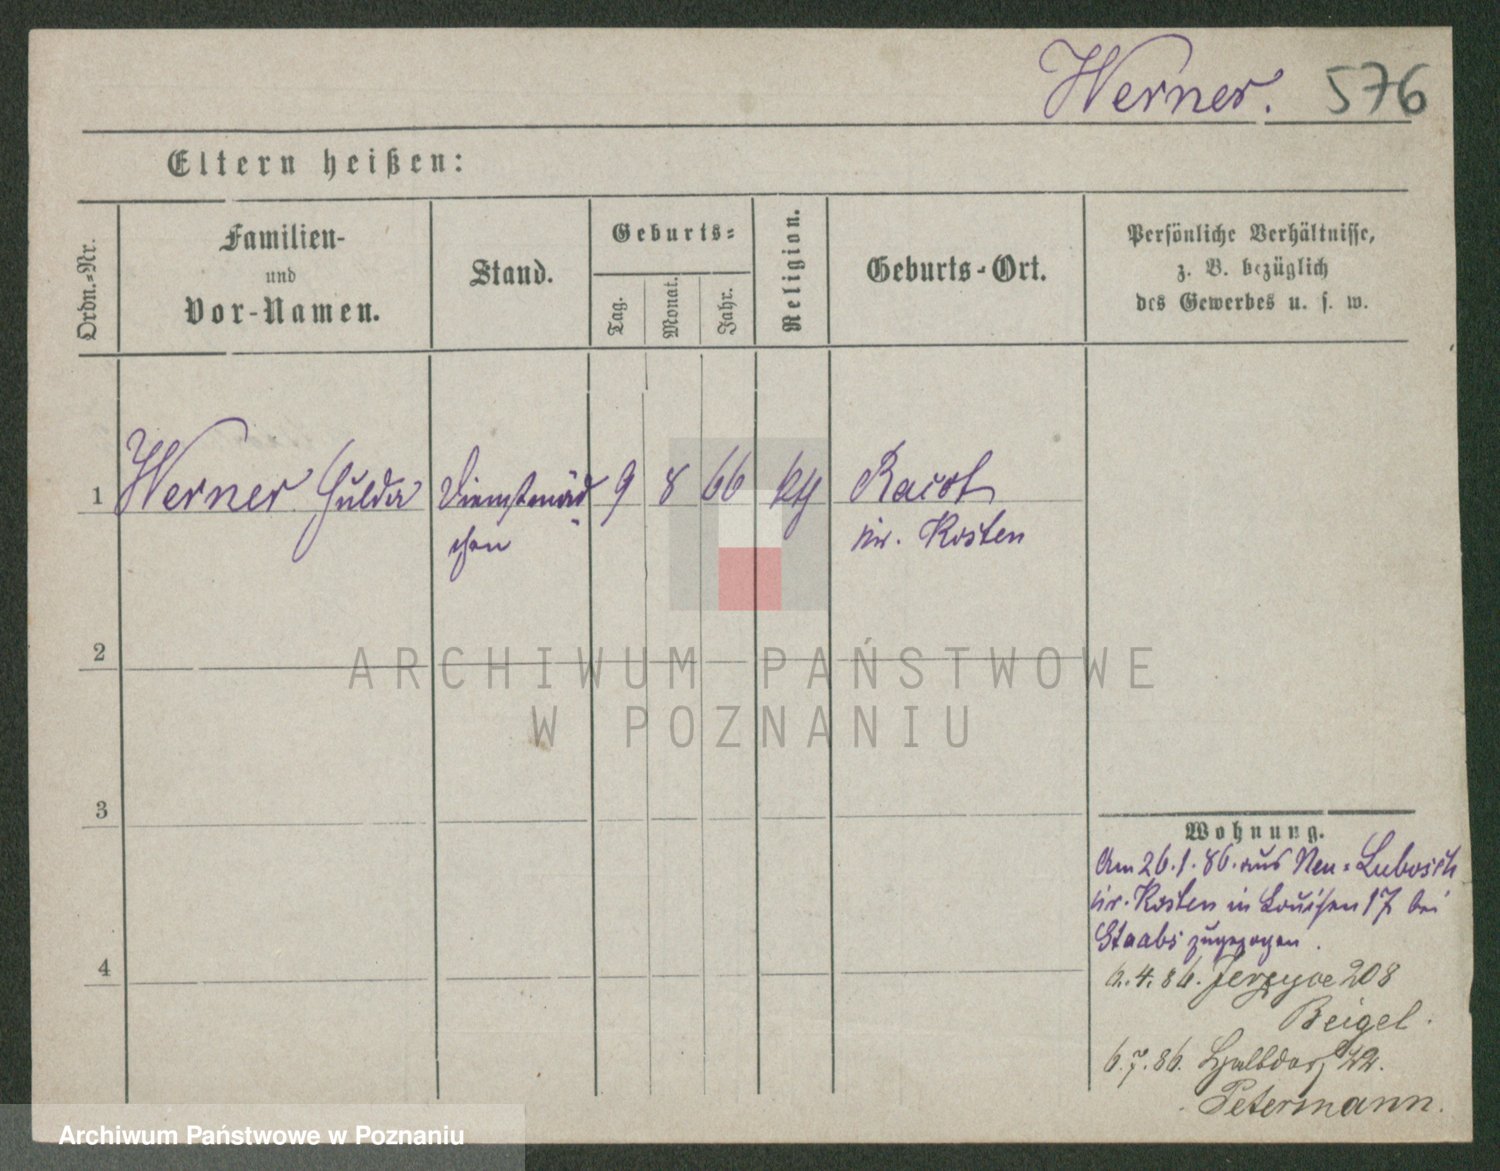 Werner. 576
Eltern heißen:
Ordn.-Nr.
Familien-
und
Vor-Namen.
Stand.
Geburts-
Tag.
Monat.
Jahr.
Religion.
Geburts-Ort.
Persönliche Verhältnisse,
z. B. bezüglich
des Gewerbes u. s. w.
1 Werner Hulda Dienstmäd 9 8 66 kth Racot
chen Kr. Kosten
2
ARCHIWUM PAŃSTWOWE
W POZNANIU
3
Wohnung.
Am 26.1.86. aus Neu-Lubosch
Kr. Kosten in Louisen 17 bei
Staabs zugezogen.
4
6.4.86. Jerzyce 208
Beigel.
6.7.86. Halbdorf 42.
Petermann.
Archiwum Państwowe w Poznaniu